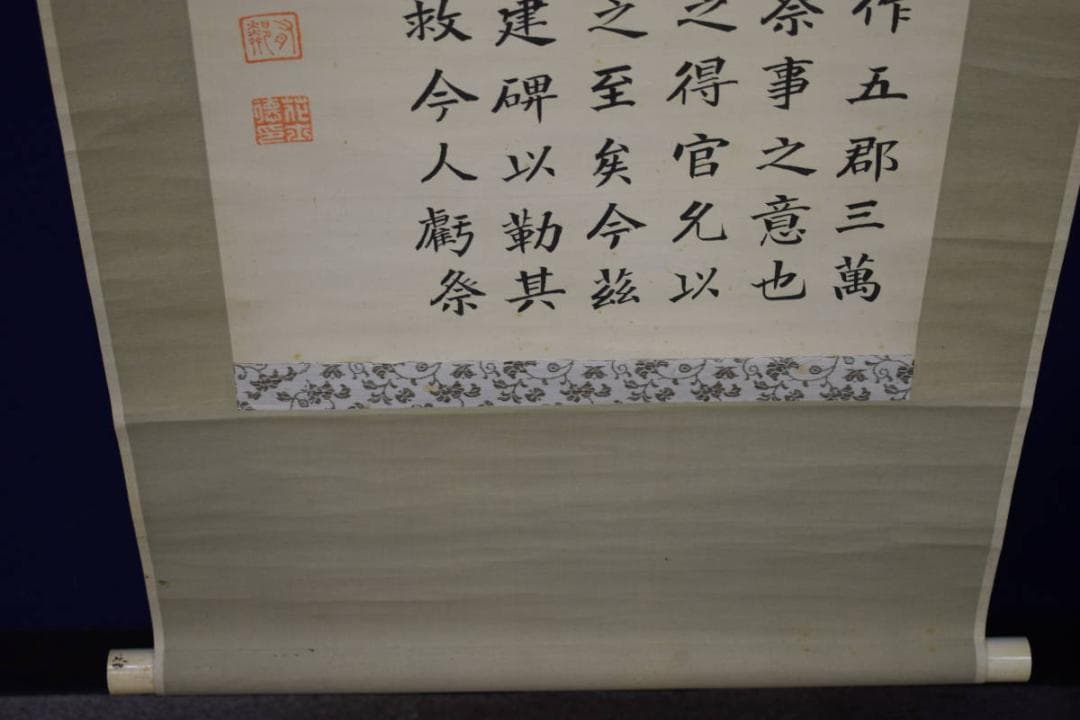 作五郡三萬
祭事之意也
之得官允以
之至矣今茲
建碑以勒其
救今人虧祭